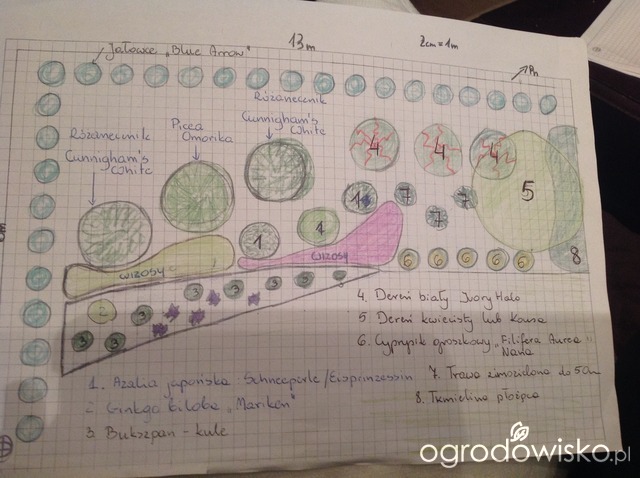 13m
2cm = 1m
Jałowce „Blue Arrow"
Pn
Różanecznik
Cunnigham's
White
Picea
Omorika
Różanecznik
Cunnigham's
White
4
4
4
5
1
7
7
7
1
1
WRZOSY
WRZOSY
6
6
6
6
6
8
2
3
3
3
3
3
3
3
3
1. Azalia japońska Schneeperle/Eisprinzessin
2. Ginkgo biloba „Mariken"
3. Bukszpan - kule
4. Dereń biały Ivory Halo
5. Dereń kwiecisty lub Kousa
6. Cyprysik groszkowy „Filifera Aurea
Nana"
7. Trawa zimozielona do 50cm
8. Trzmielina płożąca
ogrodowisko.pl